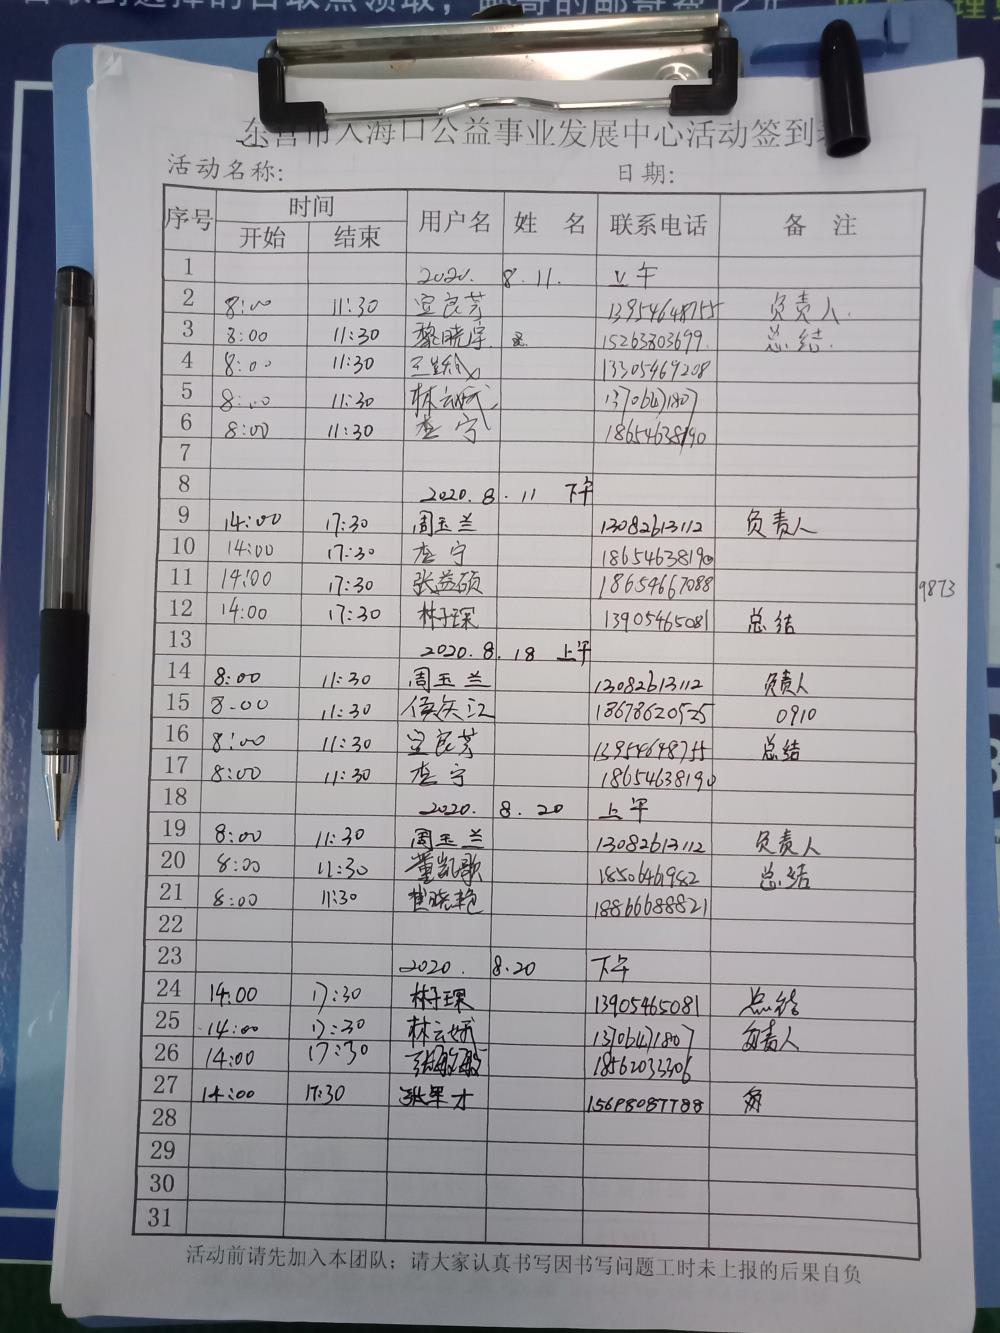 东营市入海口公益事业发展中心活动签到
活动名称: 日期:
序号 时间 用户名 姓 名 联系电话 备 注
开始 结束
1 2020. 8.11. 上午
2 8:00 11:30 宜良芳 13954648755 负责人.
3 8:00 11:30 黎晓宇. 15263803699. 总结.
4 8:00 11:30 13305469208
5 8:00 11:30 林云娥 13706471807
6 8:00 11:30 李宁 18654638190
7
8 2020.8.11 下午
9 14:00 17:30 周玉兰 13082613112 负责人
10 14:00 17:30 李宁 18654638190
11 14:00 17:30 张益硕 18654667088
9873
12 14:00 17:30 林子琛 13905465081 总结
13 2020.8.18 上午
14 8:00 11:30 周玉兰 13082613112 负责人
15 8:00 11:30 18678620525 0910
16 8:00 11:30 宜良芳 13954648755 总结
17 8:00 11:30 李宁 18654638190
18 2020. 8.20 上午
19 8:00 11:30 周玉兰 13082613112 负责人
20 8:00 11:30 董凯歌 18506461982 总结
21 8:00 11:30 18866688821
22
23 2020. 8.20 下午
24 14:00 17:30 林子琛 13905465081 总结
25 14:00 17:30 林云娥 13706471807 负责人
26 14:00 17:30 张敏敏 18562033306
27 14:00 17:30 张军才 15698087788
28
29
30
31
活动前请先加入本团队；请大家认真书写因书写问题工时未上报的后果自负